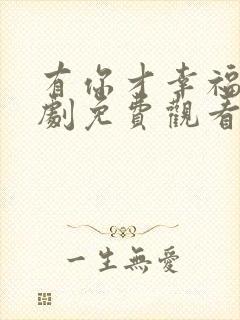 有你才幸福
劇免費觀看
一生無愛